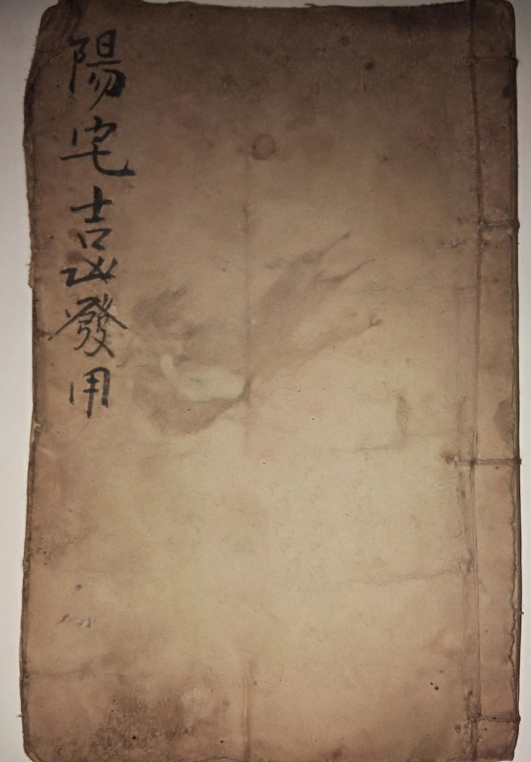 陽宅吉凶發用